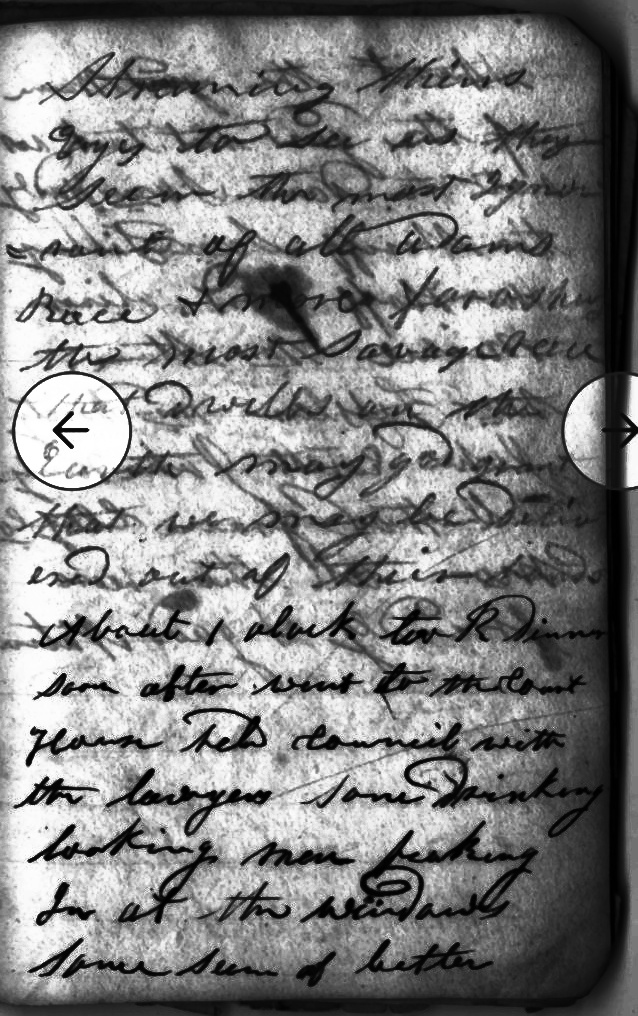 Straining thier
Eyes to see us they
Seem the most Igno
=rant of all adams
Race & more
the most Savage race
that dwells on the
Earth may god grant
that we may be deliv
ered out of their hands
About 1 olock took Dinner
soon after went to the Court
House held council with
the lawyers some Drinking
looking men peeking
In at the windows
some seem of better